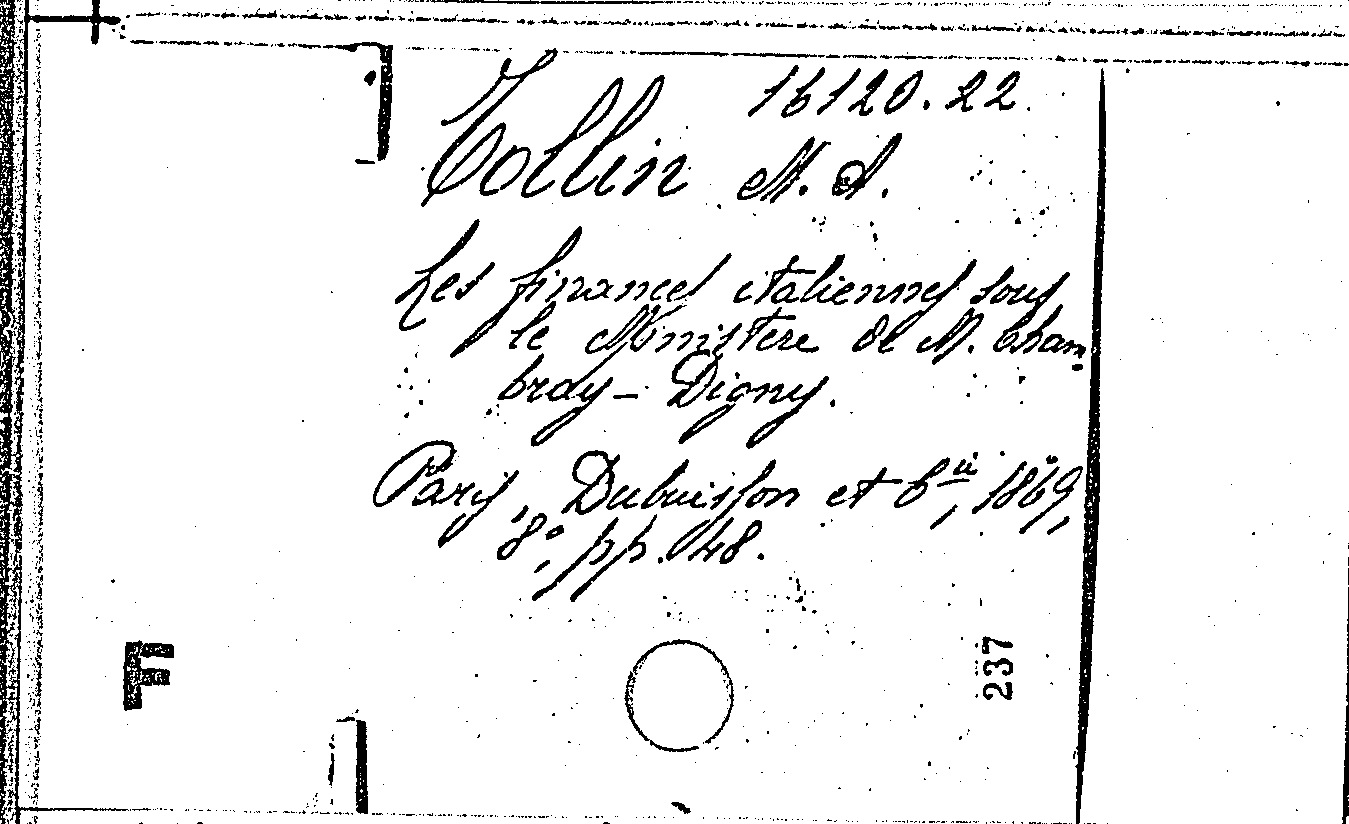 16120.22
Tollin M. A.
Les finances italiennes sous
le Ministère de M. Cham
bray - Digny.
Paris, Dubuisson et Cie, 1869,
8°, pp. 48.
F
237